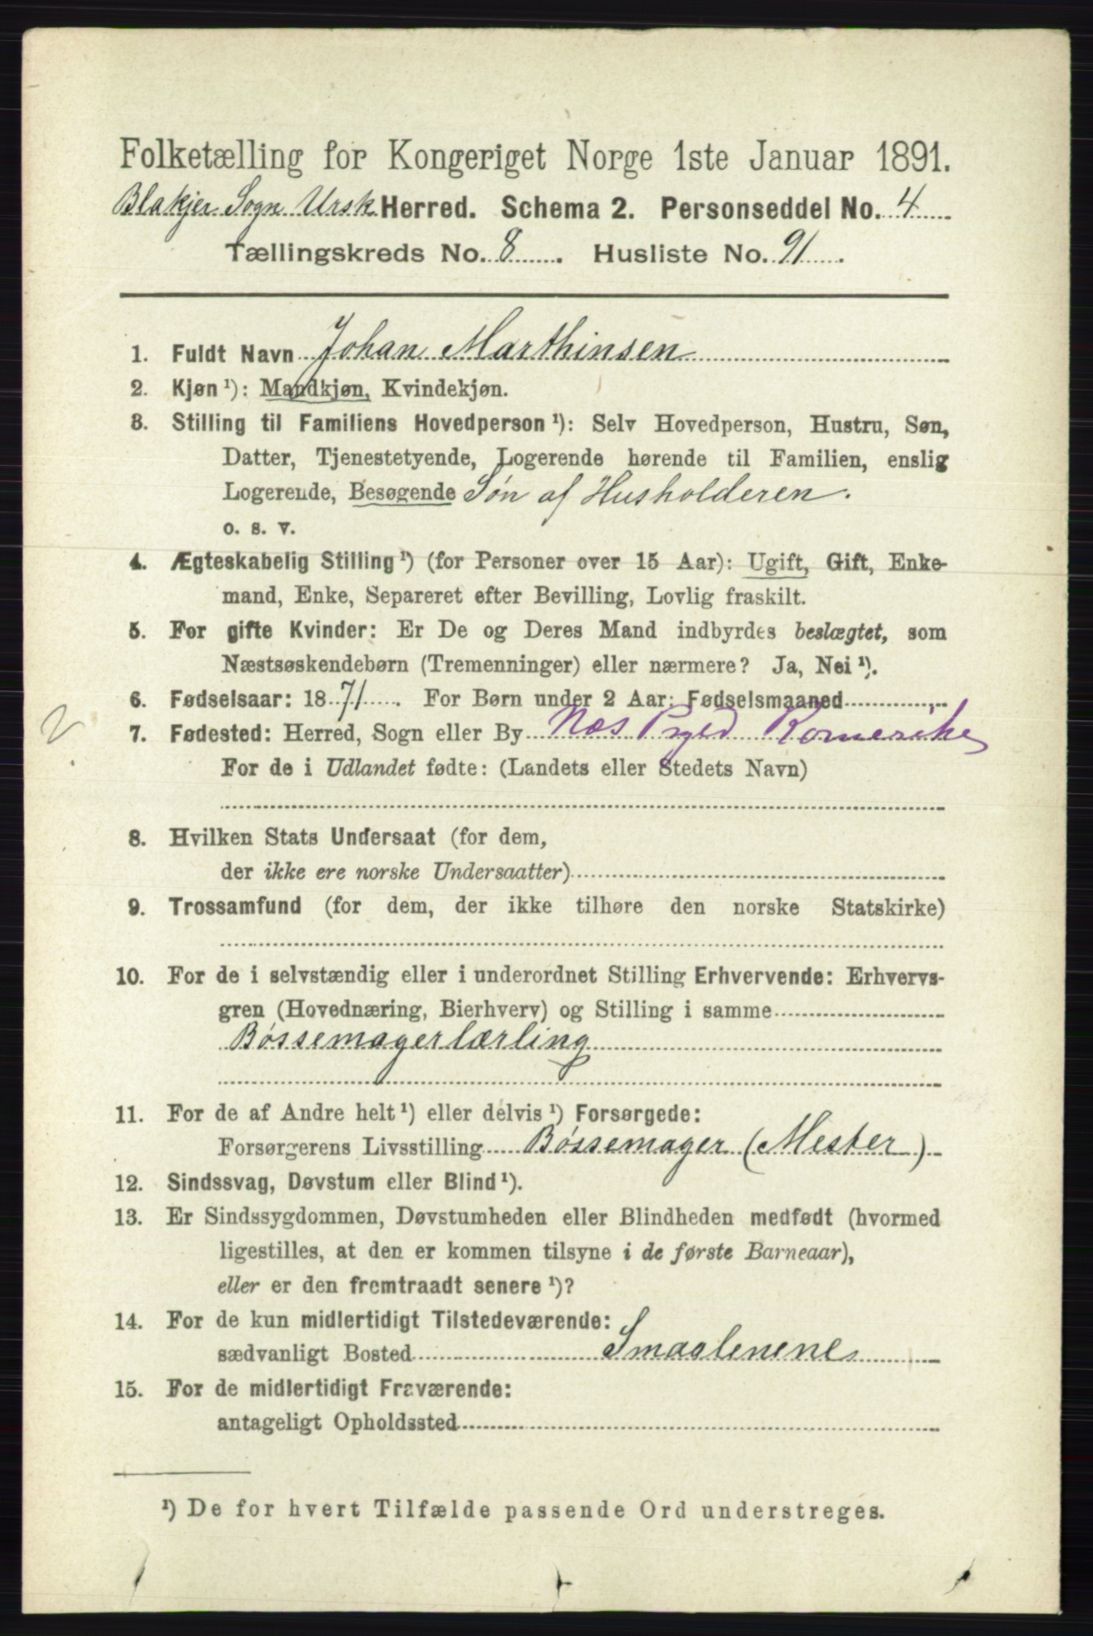 Folketælling for Kongeriget Norge 1ste Januar 1891.
Blakjer Sogn Ursk Herred. Schema 2. Personseddel No. 4
Tællingskreds No. 8 . Husliste No. 91 .
1. Fuldt Navn Johan Marthinsen
2. Kjøn ¹): Mandkjøn, Kvindekjøn.
3. Stilling til Familiens Hovedperson ¹): Selv Hovedperson, Hustru, Søn,
Datter, Tjenestetyende, Logerende hørende til Familien, enslig
Logerende, Besøgende Søn af Husholderen.
o. s. v.
4. Ægteskabelig Stilling ¹) (for Personer over 15 Aar): Ugift, Gift, Enke-
mand, Enke, Separeret efter Bevilling, Lovlig fraskilt.
5. For gifte Kvinder: Er De og Deres Mand indbyrdes beslægtet, som
Næstsøskendebørn (Tremenninger) eller nærmere? Ja, Nei ¹).
6. Fødselsaar: 1871 . For Børn under 2 Aar: Fødselsmaaned
7. Fødested: Herred, Sogn eller By Næs Pgjd Romerike
For de i Udlandet fødte: (Landets eller Stedets Navn)
8. Hvilken Stats Undersaat (for dem,
der ikke ere norske Undersaatter)
9. Trossamfund (for dem, der ikke tilhøre den norske Statskirke)
10. For de i selvstændig eller i underordnet Stilling Erhvervende: Erhvervs-
gren (Hovednæring, Bierhverv) og Stilling i samme
Bøssemagerlærling
11. For de af Andre helt ¹) eller delvis ¹) Forsørgede:
Forsørgerens Livsstilling Bøssemager (Mester)
12. Sindssvag, Døvstum eller Blind ¹).
13. Er Sindssygdommen, Døvstumheden eller Blindheden medfødt (hvormed
ligestilles, at den er kommen tilsyne i de første Barneaar),
eller er den fremtraadt senere ¹)?
14. For de kun midlertidigt Tilstedeværende:
sædvanligt Bosted Smaalenene
15. For de midlertidigt Fraværende:
antageligt Opholdssted
¹) De for hvert Tilfælde passende Ord understreges.